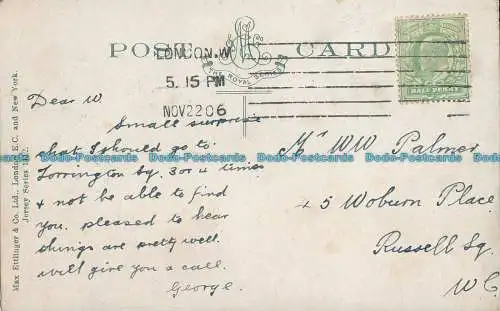 POST CARD
THE ROYAL SERIES
LONDON. W
5. 15 PM
NOV 22 06
HALF PENNY
Dear W
Small surprise
that I should go to
Torrington by. 3 or 4 times
& not be able to find
you. pleased to hear
things are pretty well.
will give you a call.
George.
Mr WW Palmer
45 Woburn Place
Russell Sq.
W C
Max Ettlinger & Co. Ltd., London, E.C. and New York.
Jersey Series